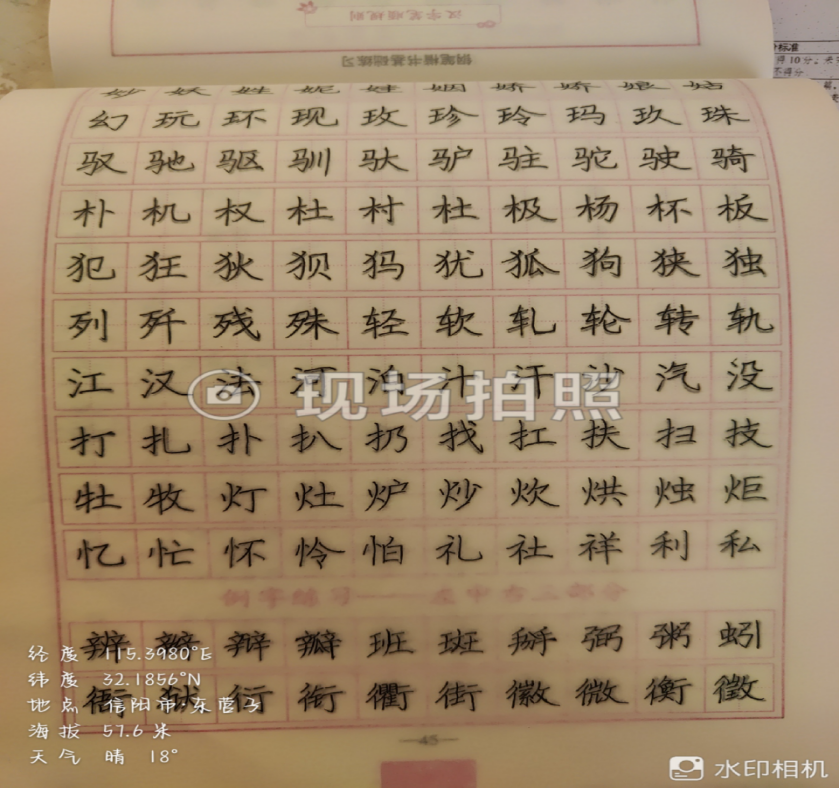 汉字笔顺规则
钢笔楷书基础练习
妙 妖 姓 妮 娃 姻 娇 娇 娘 姑
幻 玩 环 现 玫 珍 玲 玛 玖 珠
驭 驰 驱 驯 驮 驴 驻 驼 驶 骑
朴 机 权 杜 村 杜 极 杨 杯 板
犯 狂 狄 狈 犸 犹 狐 狗 狭 独
列 歼 残 殊 轻 软 轧 轮 转 轨
江 汉 法 河 泊 汁 汗 沙 汽 没
打 扎 扑 扒 扔 找 扛 扶 扫 技
牡 牧 灯 灶 炉 炒 炊 烘 烛 炬
忆 忙 怀 怜 怕 礼 社 祥 利 私
例字练习——左中右三部分
辨 辩 瓣 班 斑 掰 弼 粥 蚓
衙 狱 衍 衔 衢 街 徽 微 衡 徵
—45—
现场拍照
经度 115.3980°E
纬度 32.1856°N
地点 信阳市·东营子
海拔 57.6米
天气 晴 18°
水印相机
标准
得10分
不得分